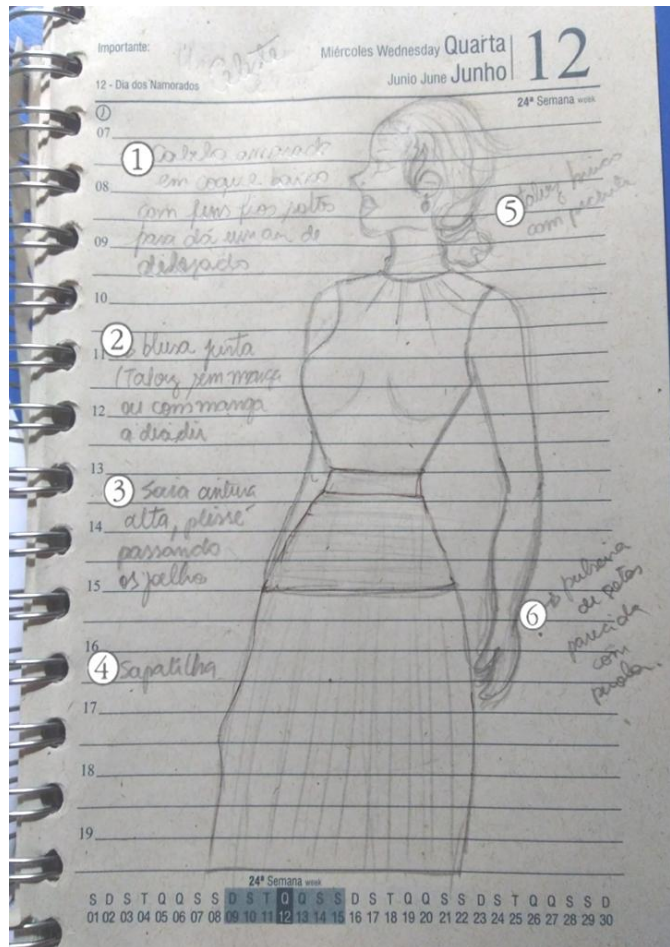 Importante:
Miércoles Wednesday Quarta
Junio June Junho
12
12 - Dia dos Namorados
24ª Semana week
07
1
Cabelo amarrado
em coque baixo
08
com fios
para dá um ar de
09
10
2
11
blusa justa
(Talvez sem manga
12
ou com manga
a dicidir
13
3
Saia cintura
alta, plissê
14
passando
os joelho
15
16
4
Sapatilha
17
18
19
5
Talvez brinco
com
6
pulseira
de
parecida
com
perola
24ª Semana week
S D S T Q Q S S D S T Q Q S S D S T Q Q S S D S T Q Q S S D
01 02 03 04 05 06 07 08 09 10 11 12 13 14 15 16 17 18 19 20 21 22 23 24 25 26 27 28 29 30